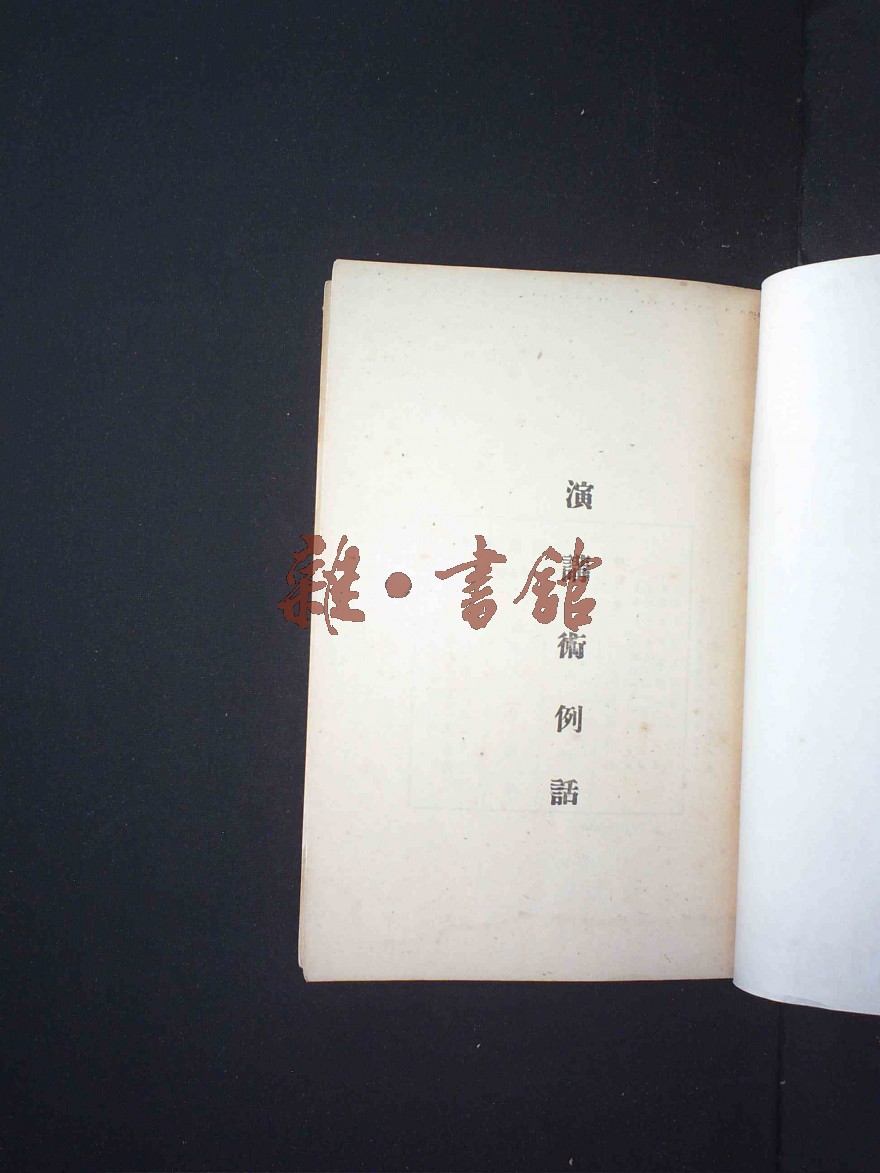 演講術例話
雜·書館